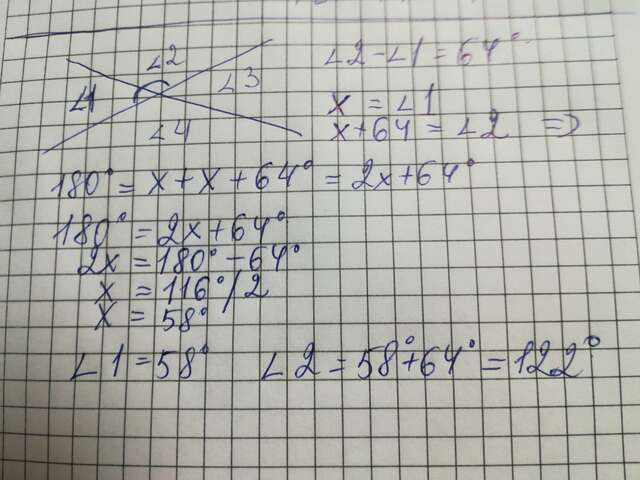 ∠2
∠1
∠3
∠4
∠2-∠1=64°
x = ∠1
x+64 = ∠2 =>
180° = x + x + 64° = 2x + 64°
180° = 2x + 64°
2x = 180° - 64°
x = 116° / 2
x = 58°
∠1 = 58° ∠2 = 58° + 64° = 122°